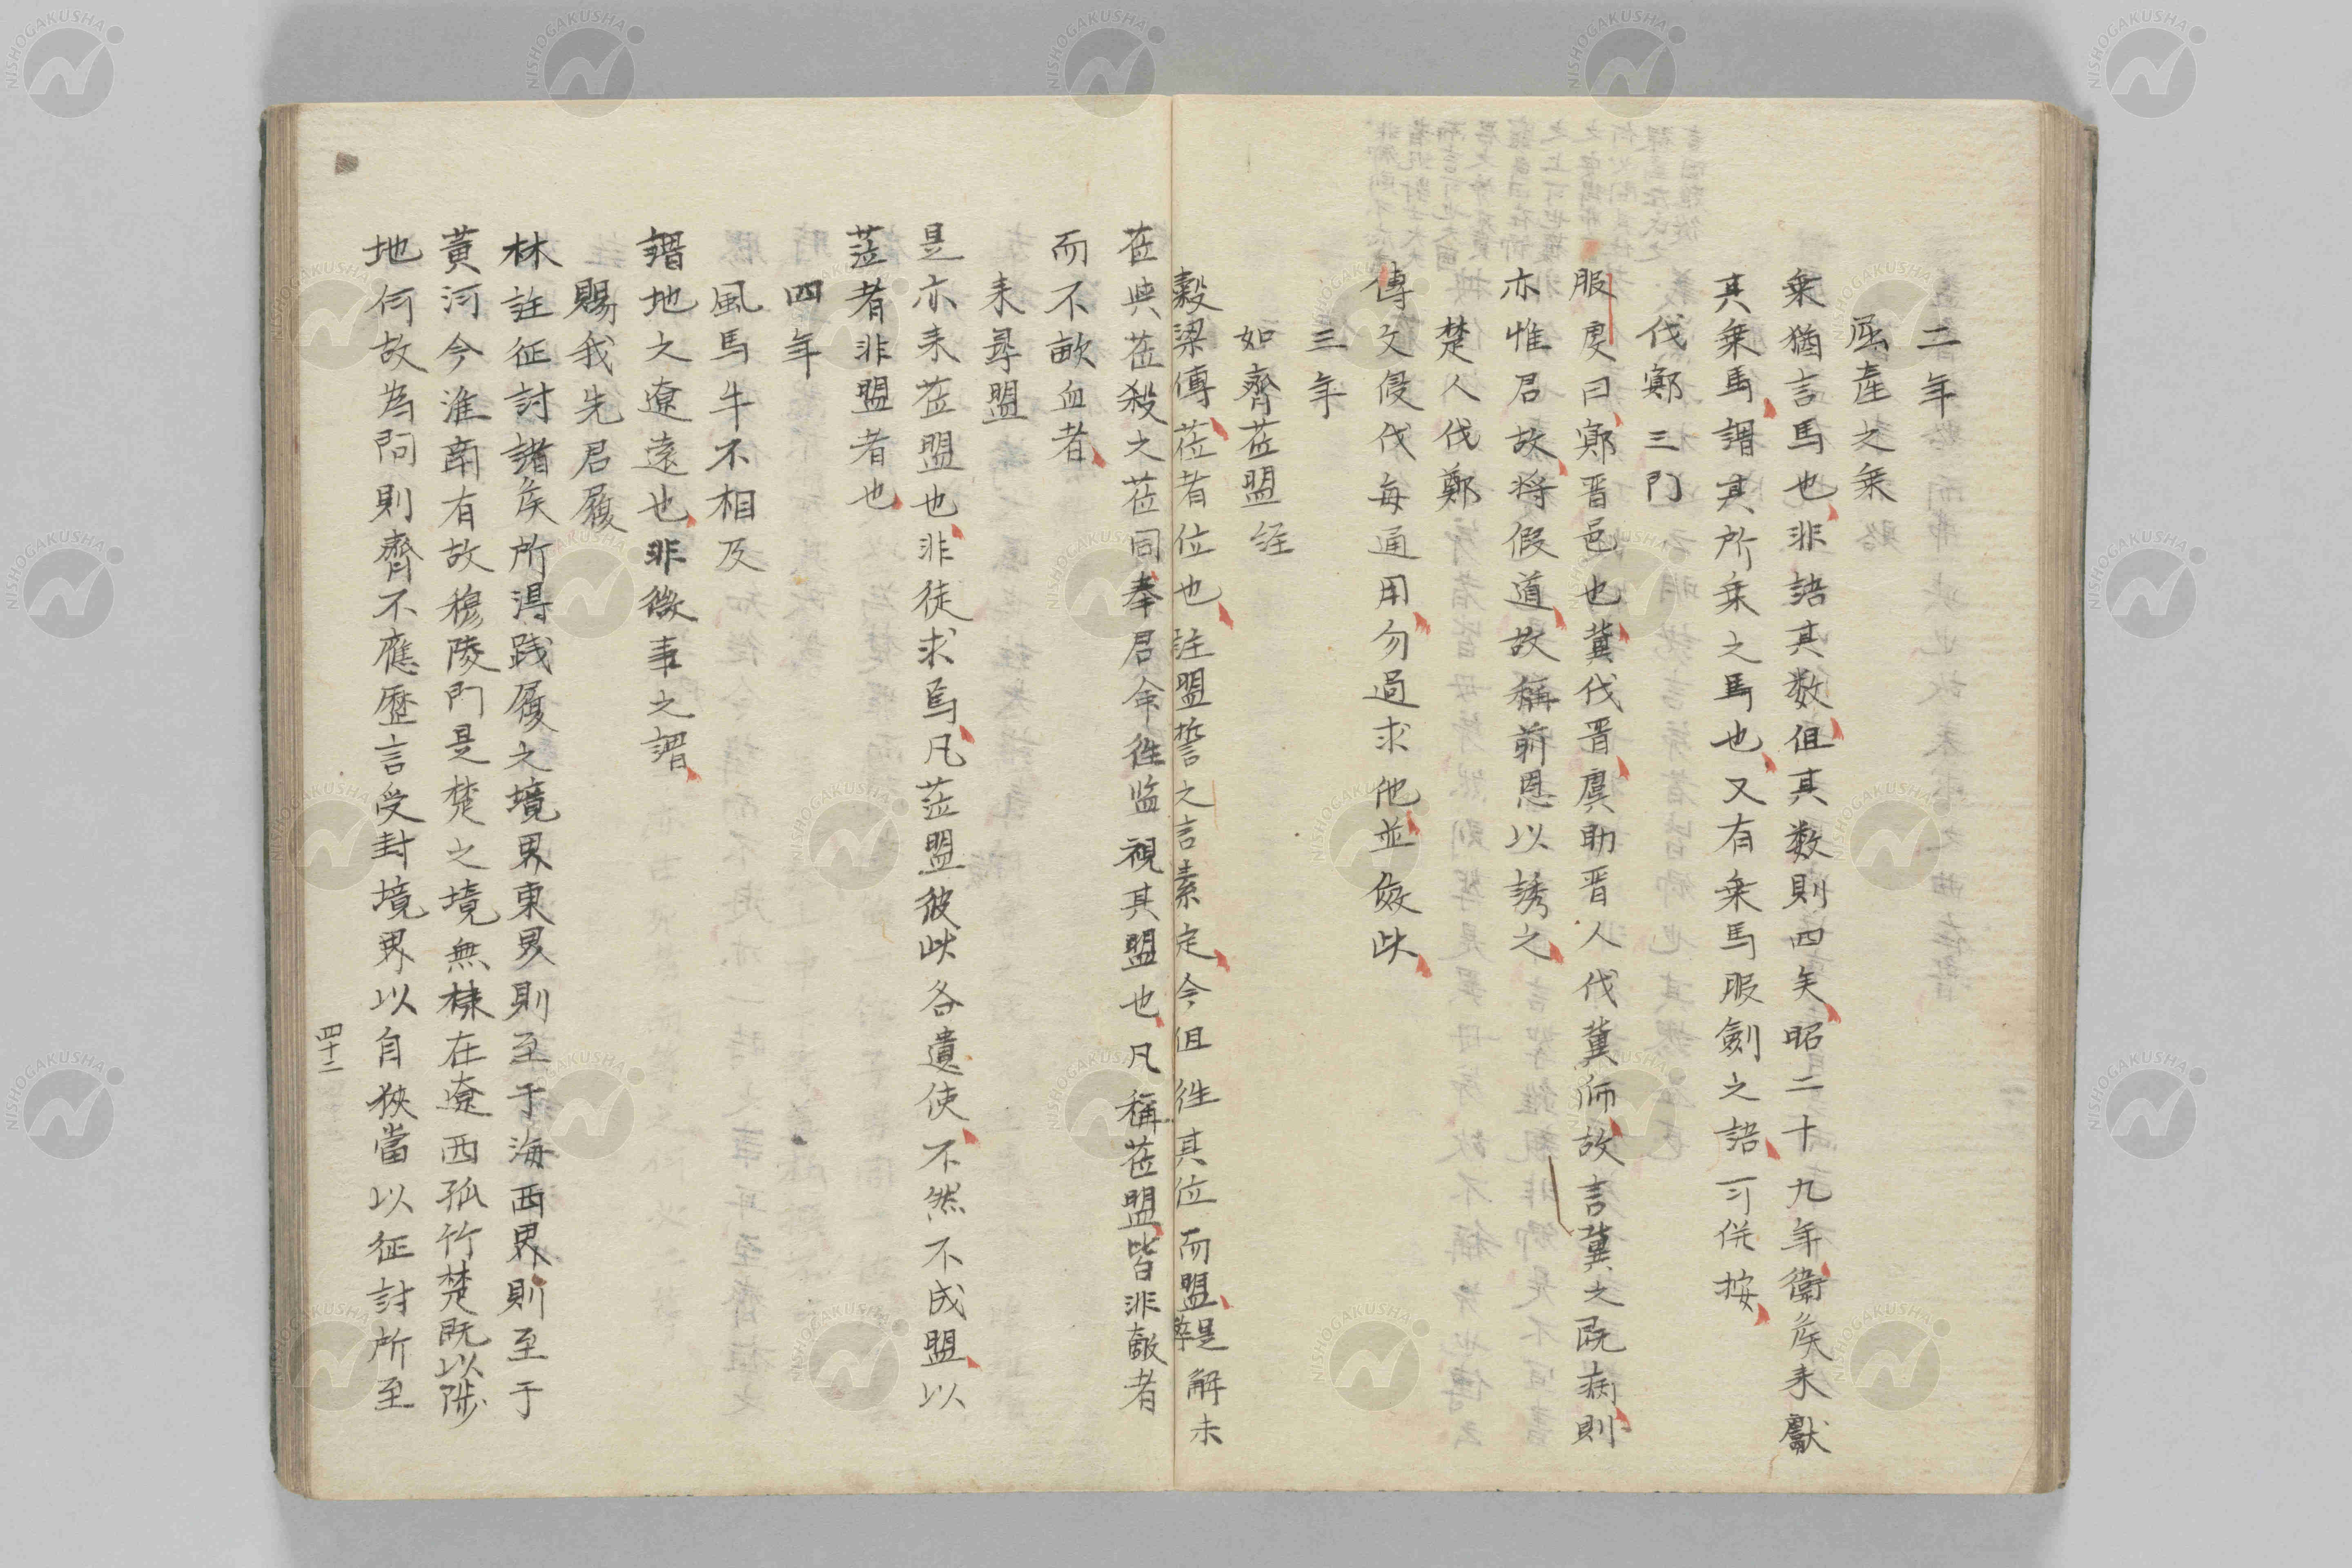 二年
屈産之乗
乗猶言馬也非語其数但其数則四矣昭二十九年衛侯来獻
其乗馬謂其所乗之馬也又有乗馬服劍之語可併按
伐鄍三門
服虔曰鄍晋邑也冀伐晋虞助晋人伐冀師故言冀之既病則
亦惟君故将假道故稱前恩以誘之
楚人伐鄭
傳文侵伐每通用勿過求他並倣此
三年
如齊莅盟経
穀梁傳莅者位也註盟誓之言素定今但徃其位而盟是解未
莅典莅殺之莅同奉君命徃监視其盟也凡稱莅盟皆非敵者
而不歃血者
来尋盟
是亦来莅盟也非徒求焉凡莅盟彼此各遣使不然不成盟以
莅者非盟者也
四年
風馬牛不相及
謂地之遼遠也非微事之謂
賜我先君履
林註征討諸侯所得践履之境界東界則至于海西界則至于
黄河今淮南有故穆陵門是楚之境無棣在遼西孤竹楚既以陟
地何故為問則齊不應歴言受封境界以自狹當以征討所至
四十二
NISHOGAKUSHA